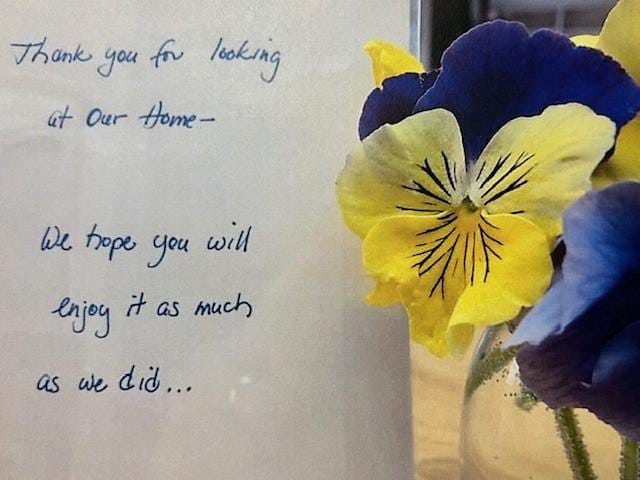 Thank you for looking
at Our Home-
We hope you will
enjoy it as much
as we did...